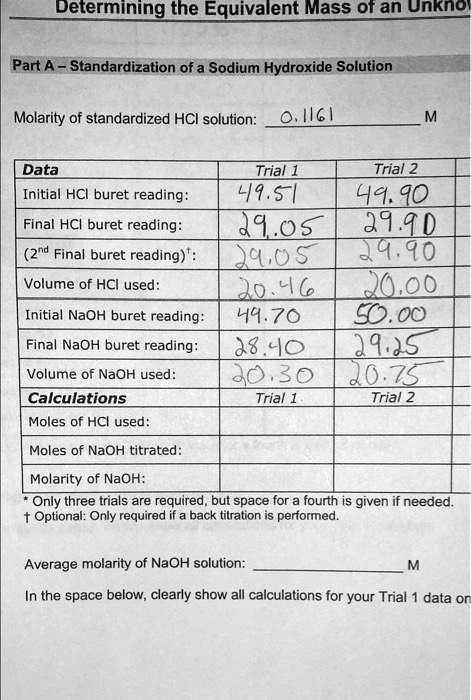 Determining the Equivalent Mass of an Unkno
Part A – Standardization of a Sodium Hydroxide Solution
Molarity of standardized HCl solution: 0.1161 M
Data Trial 1 Trial 2
Initial HCl buret reading: 49.51 49.90
Final HCl buret reading: 29.05 29.90
(2nd Final buret reading)†: 29.05 29.90
Volume of HCl used: 20.46 20.00
Initial NaOH buret reading: 49.70 50.00
Final NaOH buret reading: 28.40 29.25
Volume of NaOH used: 20.30 20.75
Calculations Trial 1 Trial 2
Moles of HCl used:
Moles of NaOH titrated:
Molarity of NaOH:
* Only three trials are required, but space for a fourth is given if needed.
† Optional: Only required if a back titration is performed.
Average molarity of NaOH solution: M
In the space below, clearly show all calculations for your Trial 1 data on